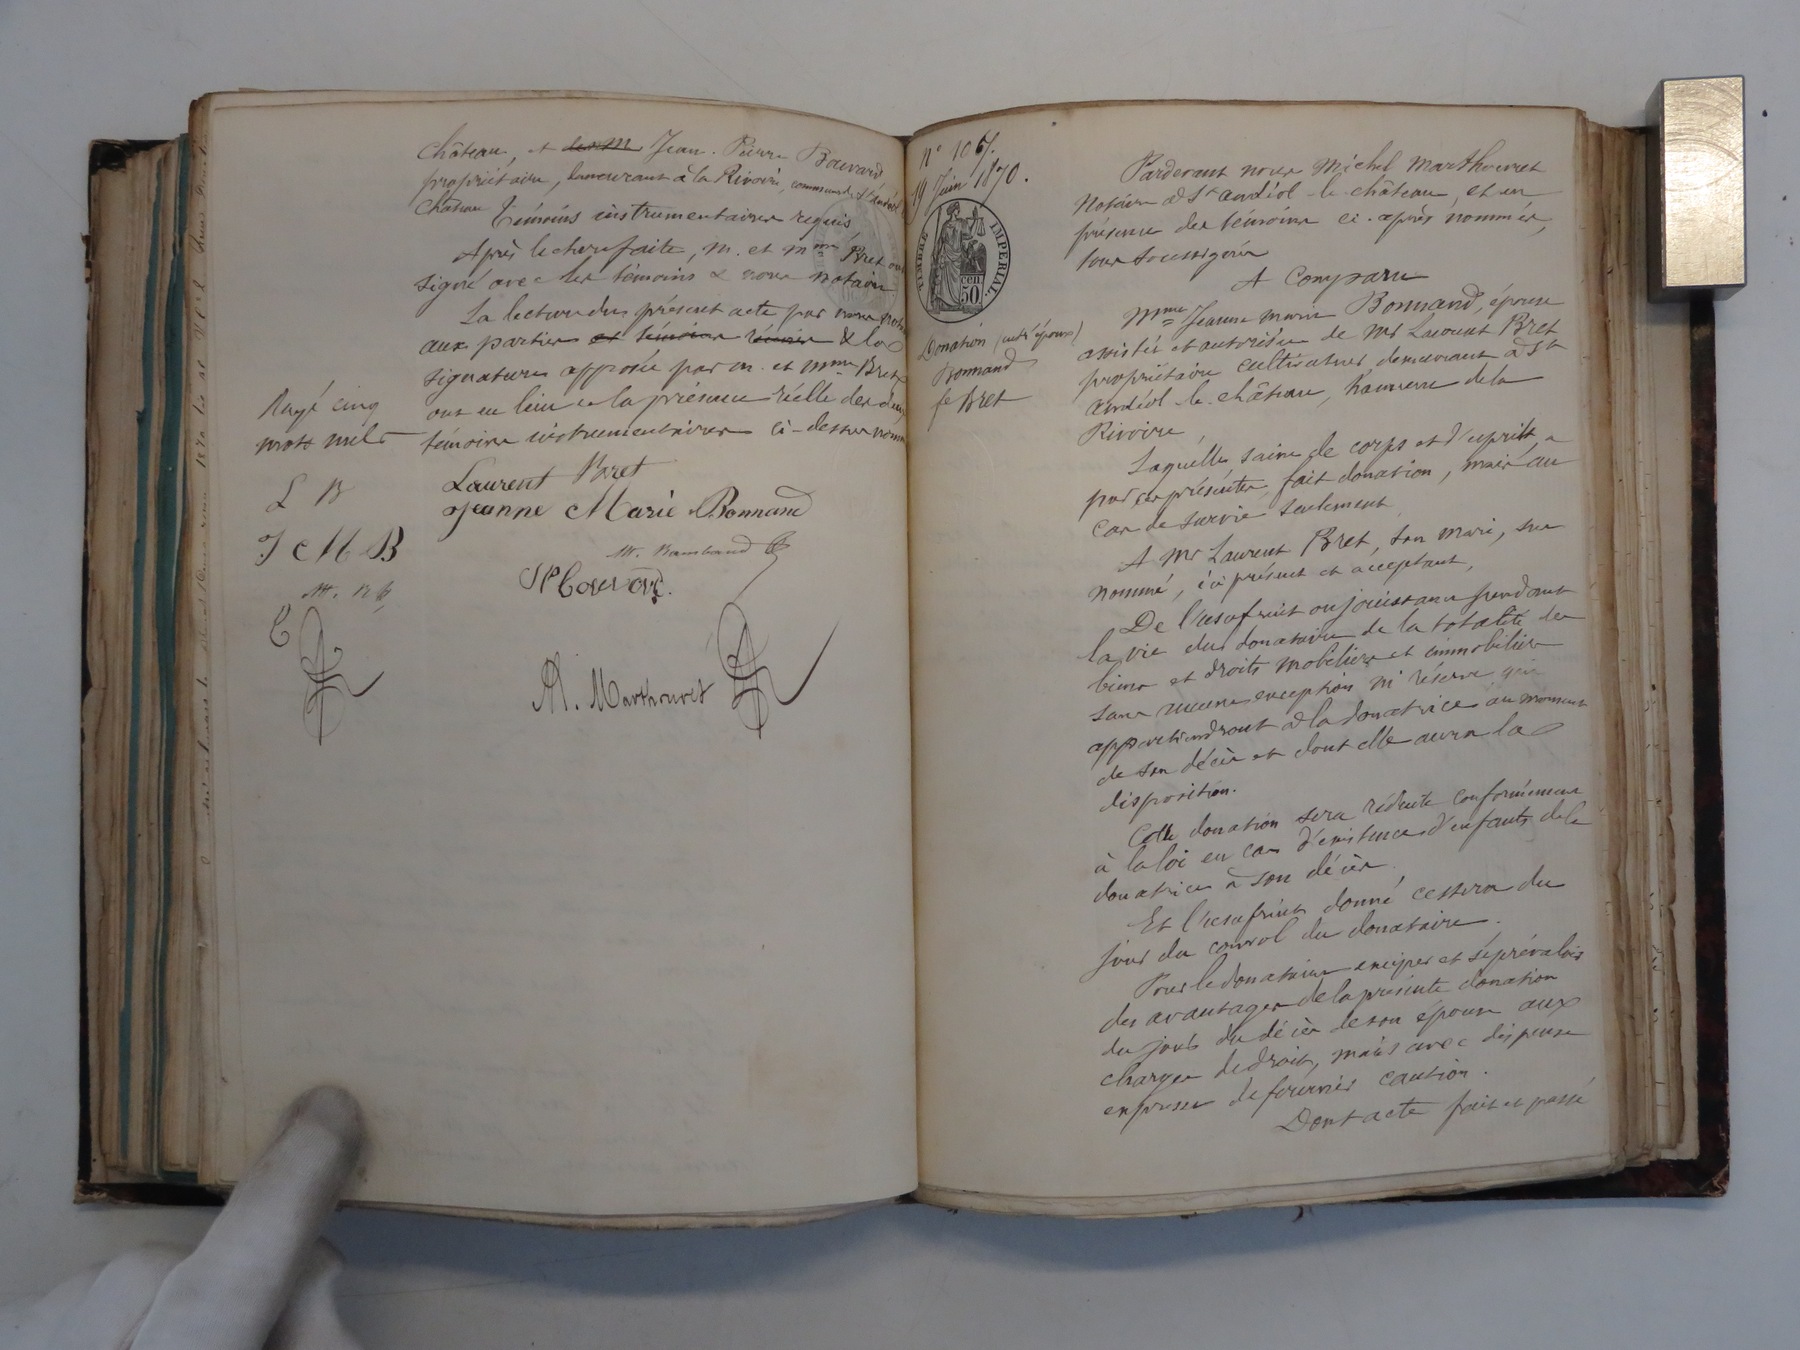 château, et les M Jean-Pierre Bouvard
propriétaire, demeurant à la Rivoire, commune de St Andéol
château Témoins instrumentaires requis
Après lecture faite, M. et Mme Bret ont
signé avec les témoins & nous notaire
La lecture du présent acte par nous notre
aux parties et témoins réunis & la
signature apposée par M. et Mme Bret
ont eu lieu en la présence réelle des deux
témoins instrumentaires ci-dessus nommés
Rayé cinq
mots nuls
L B
J M B
Laurent Bret
Jeanne Marie Bonnand
JP Bouvard.
M. Marthouret
N° 106.
19 Juin 1870.
TIMBRE IMPERIAL.
50 cen
Donation (entre époux)
Bonnand
fe Bret
Pardevant nous Michel Marthouret
Notaire à St Andéol-le-château, et en
présence des témoins ci-après nommés,
tous soussignés
A Comparu
Mme Jeanne Marie Bonnand, épouse
assistée et autorisée de Mr Laurent Bret
propriétaire cultivateur demeurant à St
Andéol-le-château, hameau de la
Rivoire,
Laquelle, saine de corps et d'esprit, a
par ces présentes, fait donation, mais au
cas de survie seulement
A Mr Laurent Bret, son mari, sus
nommé, ici présent et acceptant,
De l'usufruit ou jouissance pendant
la vie du donataire de la totalité des
biens et droits mobiliers et immobiliers
sans aucune exception ni réserve qui
appartiendront à la donatrice au moment
de son décès et dont elle aura la
disposition.
Cette donation sera réduite conformément
à la loi en cas d'existence d'enfants de la
donatrice à son décès.
Et l'usufruit donné cessera du
jour du convol du donataire.
Pour le donataire exciper et se prévaloir
des avantages de la présente donation
du jour du décès de son épouse aux
charges de droit, mais avec dispense
expresse de fournir caution.
Dont acte fait et passé